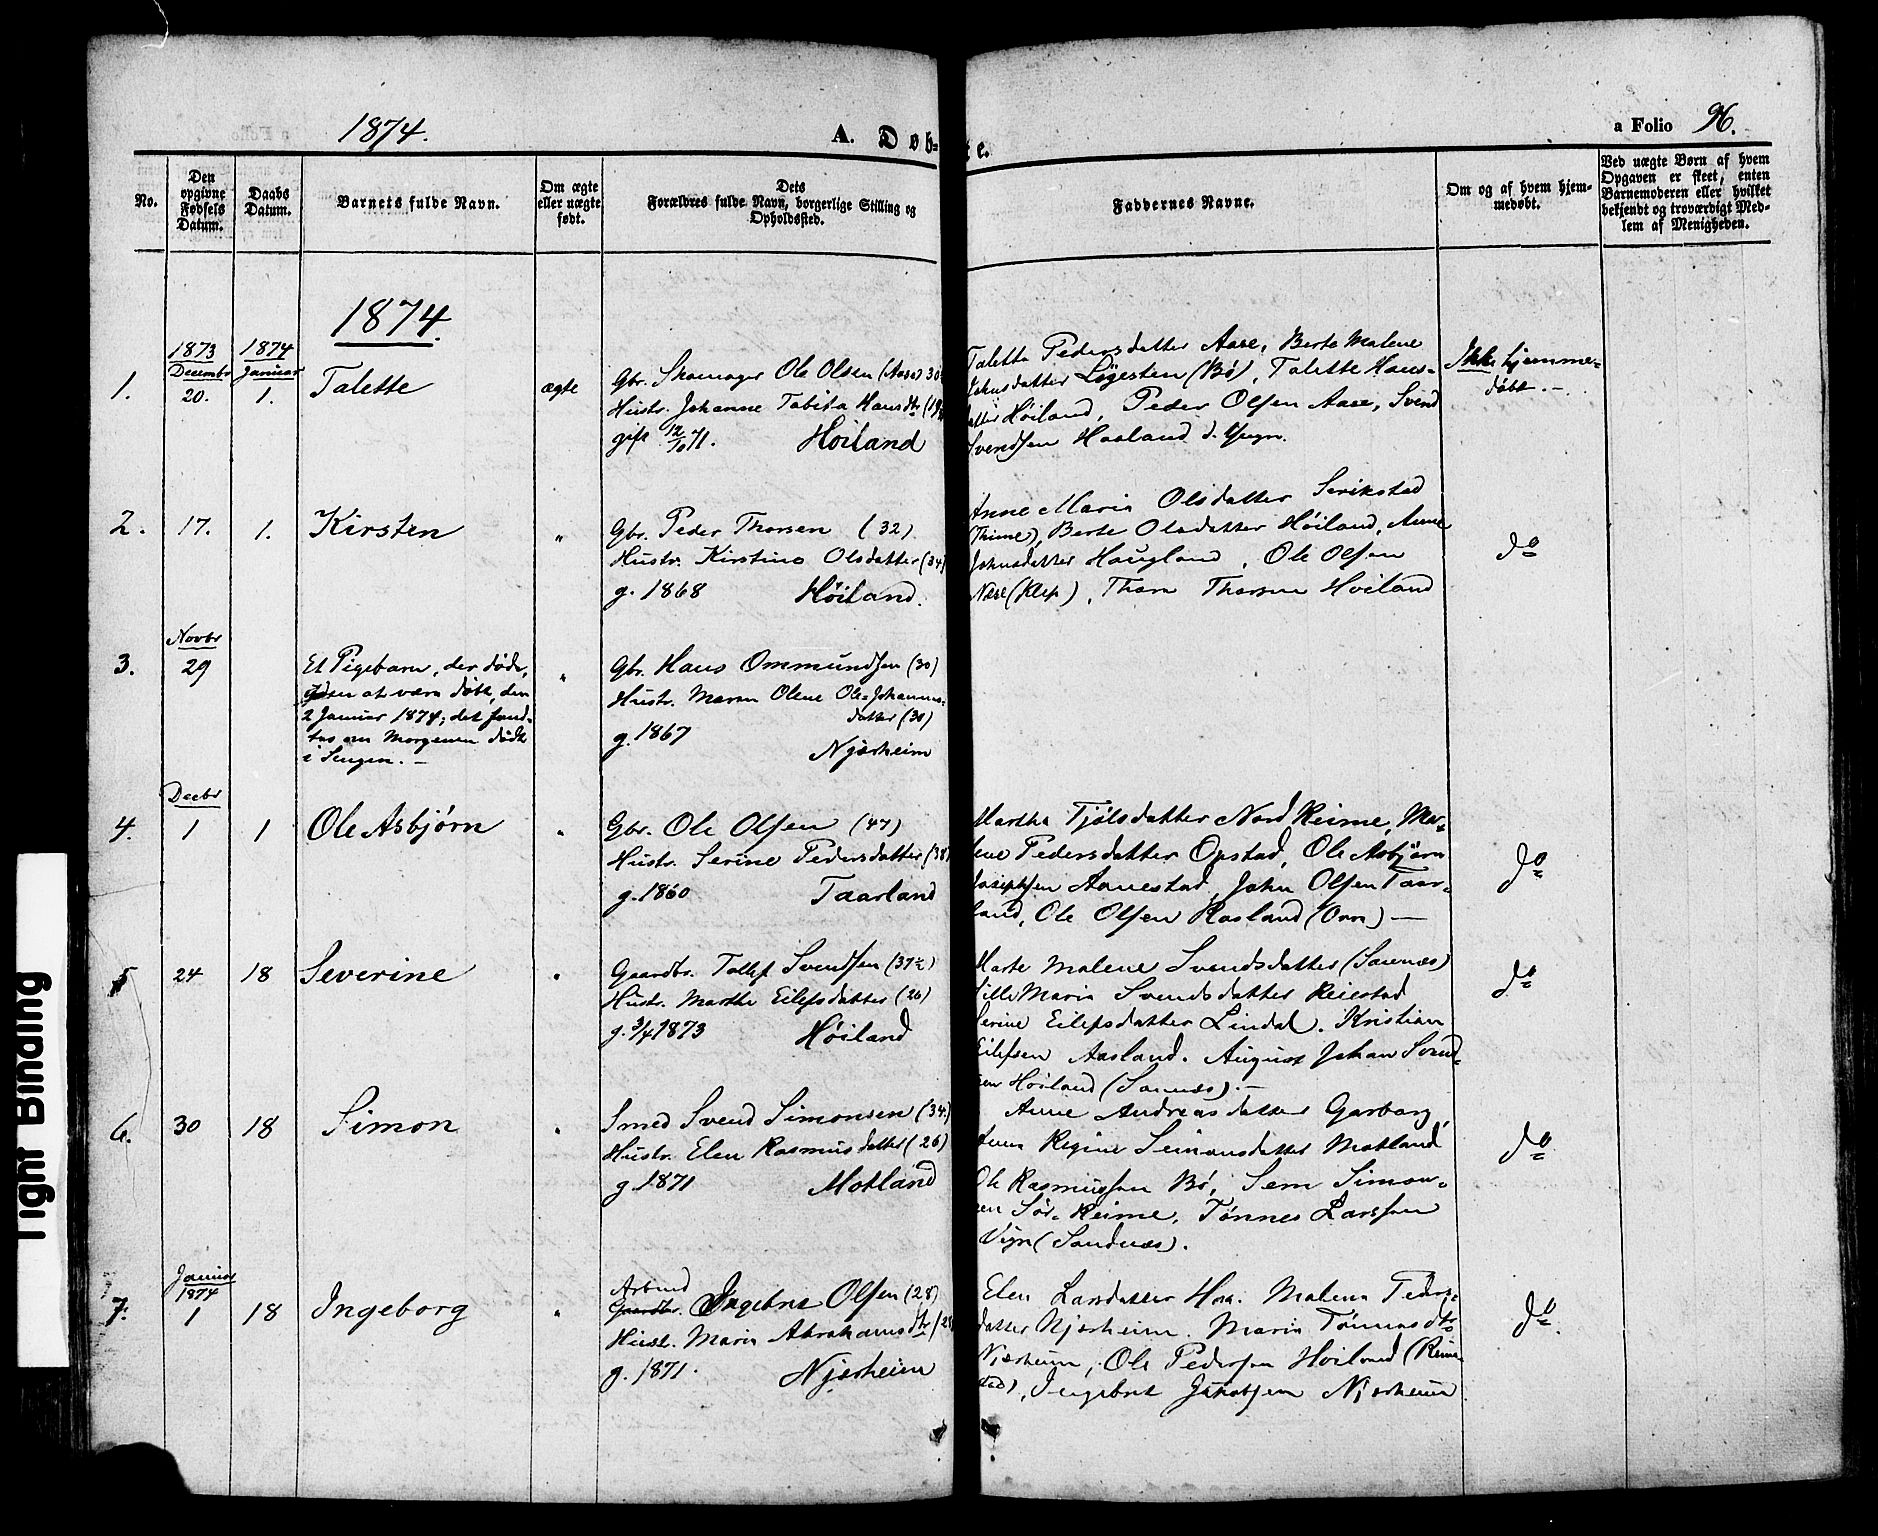 1874.
A. Døb-
te.
a Folio 96.
No.
Den opgivne Fødsels Datum.
Daabs Datum.
Barnets fulde Navn.
Om ægte eller uægte født.
Dets Forældres fulde Navn, borgerlige Stilling og Opholdssted.
Faddernes Navne.
Om og af hvem hjem-
medøbt.
Ved uægte Børn af hvem
Opgaven er skeet, enten
Barnemoderen eller hvilket
bekjendt og troværdigt Med-
lem af Menigheden.
1874.
1873 Decembr 20.
1874 Januar 1.
1.
Talette
ægte
Gbr. Skomager Ole Olsen (Aase) 30
Hustr. Johanne Tabita Hansdtr
gift 12/10 71. Høiland
Taletta Pedersdatter Aase, Berte Malene
Johnsdatter Løgesten (Bø), Talette Hans-
datter Høiland, Peder Olsen Aase, Svend
Svendsen Haaland d. Yngr.
Ikke hjemme-
døbt. -
2.
17.
1.
Kirsten
"
Gbr. Peder Thorsen (32)
Hustr. Kirstine Olsdatter (34)
g. 1868 Høiland.
Anne Maria Olsdatter Serikstad
(Thime), Berte Olsdatter Høiland, Anne
Johnsdatter Haugland, Ole Olsen
Næse (Klep), Thore Thorsen Høiland
do
3.
Novbr
29
Et Pigebarn, der døde,
uden at være døbt, den
2 Januar 1874; det fand-
tes om Morgenen dødt
i Sengen. -
"
Gbr. Hans Ommundsen (30)
Hustr. Maren Olene Ole-Johannes-
datter (30)
g. 1867 Njærheim
4.
Decbr
1
1
Ole Asbjørn
"
Gbr. Ole Olsen (47)
Hustr. Serine Pedersdatter (38)
g. 1860 Taarland
Martha Tjølsdatter Nord Reime, Ma-
lene Pedersdatter Opstad, Ole Asbjørn
Josephsen Aanestad, John Olsen Taar-
land, Ole Olsen Rasland (Orre) -
do
5
24
18
Severine
"
Gaardbr. Tollef Svendsen (37½)
Hustr. Marthe Eilefsdatter (26)
g. 3/4 1873 Høiland
Marte Malene Svendsdatter (Sannæs)
Sille Maria Svendsdatter Reiestad
Serine Eilefsdatter Lindal. Kristian
Eilefsen Aasland. August Johan Svend-
sen Høiland (Sannæs). -
do
6.
30
18
Simon
"
Smed Svend Simonsen (34)
Hustr. Elen Rasmusdatter (26)
g. 1871 Motland
Anne Andreasdatter Garborg,
Anna Regine Seimonsdatter Motland
Ole Rasmussen Bø, Sem Simon-
sen Sør-Reime, Tønnes Larssen
Vign (Sandnæs).
do
7.
Januar
1874
1
18
Ingeborg
"
Arbeid
Gaardbr. Ingebret Olsen (28)
Hust. Maria Abrahamsdtr (28)
g. 1871. Njærheim
Elen Larsdatter Haa. Malena Peders-
datter Njærheim. Maria Tønnesdtr
Njærheim, Ole Pedersen Høiland (Reime-
stad), Ingebret Jakobsen Njærheim
do.
Tight Binding